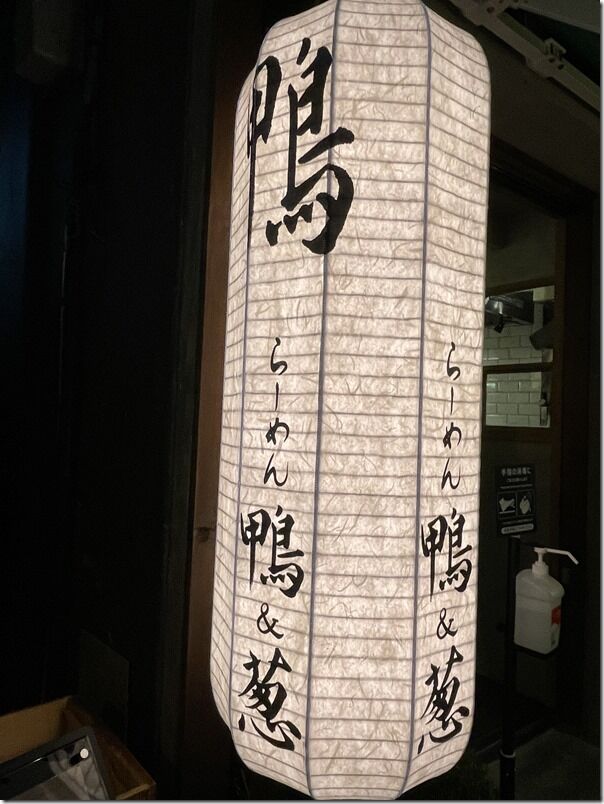 鴨
らーめん 鴨&葱
らーめん 鴨&葱
手指の消毒に